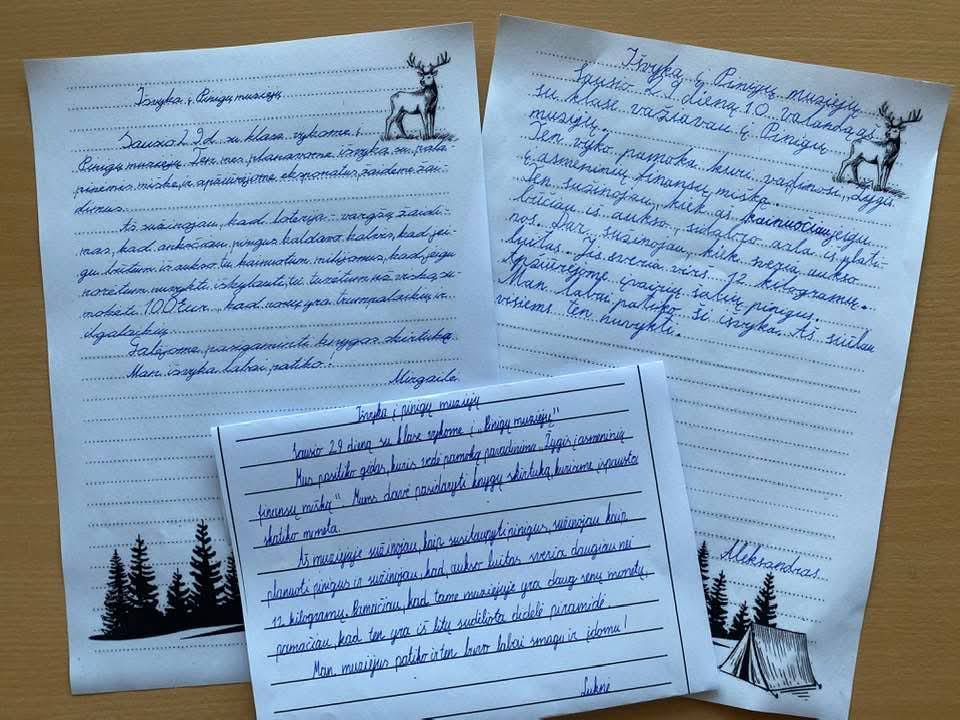 Išvyka į Pinigų muziejų
Sausio 29 d. su klase vykome į
Pinigų muziejų. Ten mes planavome išvyką su pala-
pinėmis miške ir apžiūrėjome eksponatus, žaidėme žai-
dimus.
Aš sužinojau, kad loterija - vargšų žaidi-
mas, kad anksčiau pinigus kaldavo kalvis, kad jei-
gu būtum iš aukso, tu kainuotum milijonus, kad, jeigu
norėtum nuvykti iškylauti, tu turėtum už viską su-
mokėti 100 Eur, kad norų yra trumpalaikių ir
ilgalaikių.
Galėjome pasigaminti knygos skirtuką.
Man išvyka labai patiko!
Mirgailė
Išvyka į Pinigų muziejų
Sausio 29 dieną 10 valandą aš
su klase važiavau į Pinigų
muziejų.
Ten vyko pamoka, kuri vadinosi „Žygis
į asmeninių finansų mišką.
Ten sužinojau, kiek aš kainuočiau, jeigu
būčiau iš aukso, sidabro arba iš plati-
nos. Dar sužinojau, kiek sveria aukso
luitas. Jis sveria virš 12 kilogramų.
Apžiūrėjome įvairių šalių pinigus.
Man labai patiko ši išvyka. Aš siūlau
visiems ten nuvykti.
Aleksandras
Išvyka į pinigų muziejų
Sausio 29 dieną su klase vykome į „Pinigų muziejų"
Mus pasitiko gidas, kuris vedė pamoką pavadinimu „Žygis į asmeninių
finansų mišką". Mums davė pasidaryti knygų skirtuką, kuriame įspausta
skatiko moneta.
Aš muziejuje sužinojau, kaip susitaupyti pinigus, sužinojau kaip
planuoti pinigus ir sužinojau, kad aukso luitas sveria daugiau nei
12 kilogramų. Pamačiau, kad tame muziejuje yra daug senų monetų,
pamačiau, kad ten yra iš litų sudėliota didelė piramidė.
Man muziejus patiko ir ten buvo labai smagu ir įdomu!
Luknė